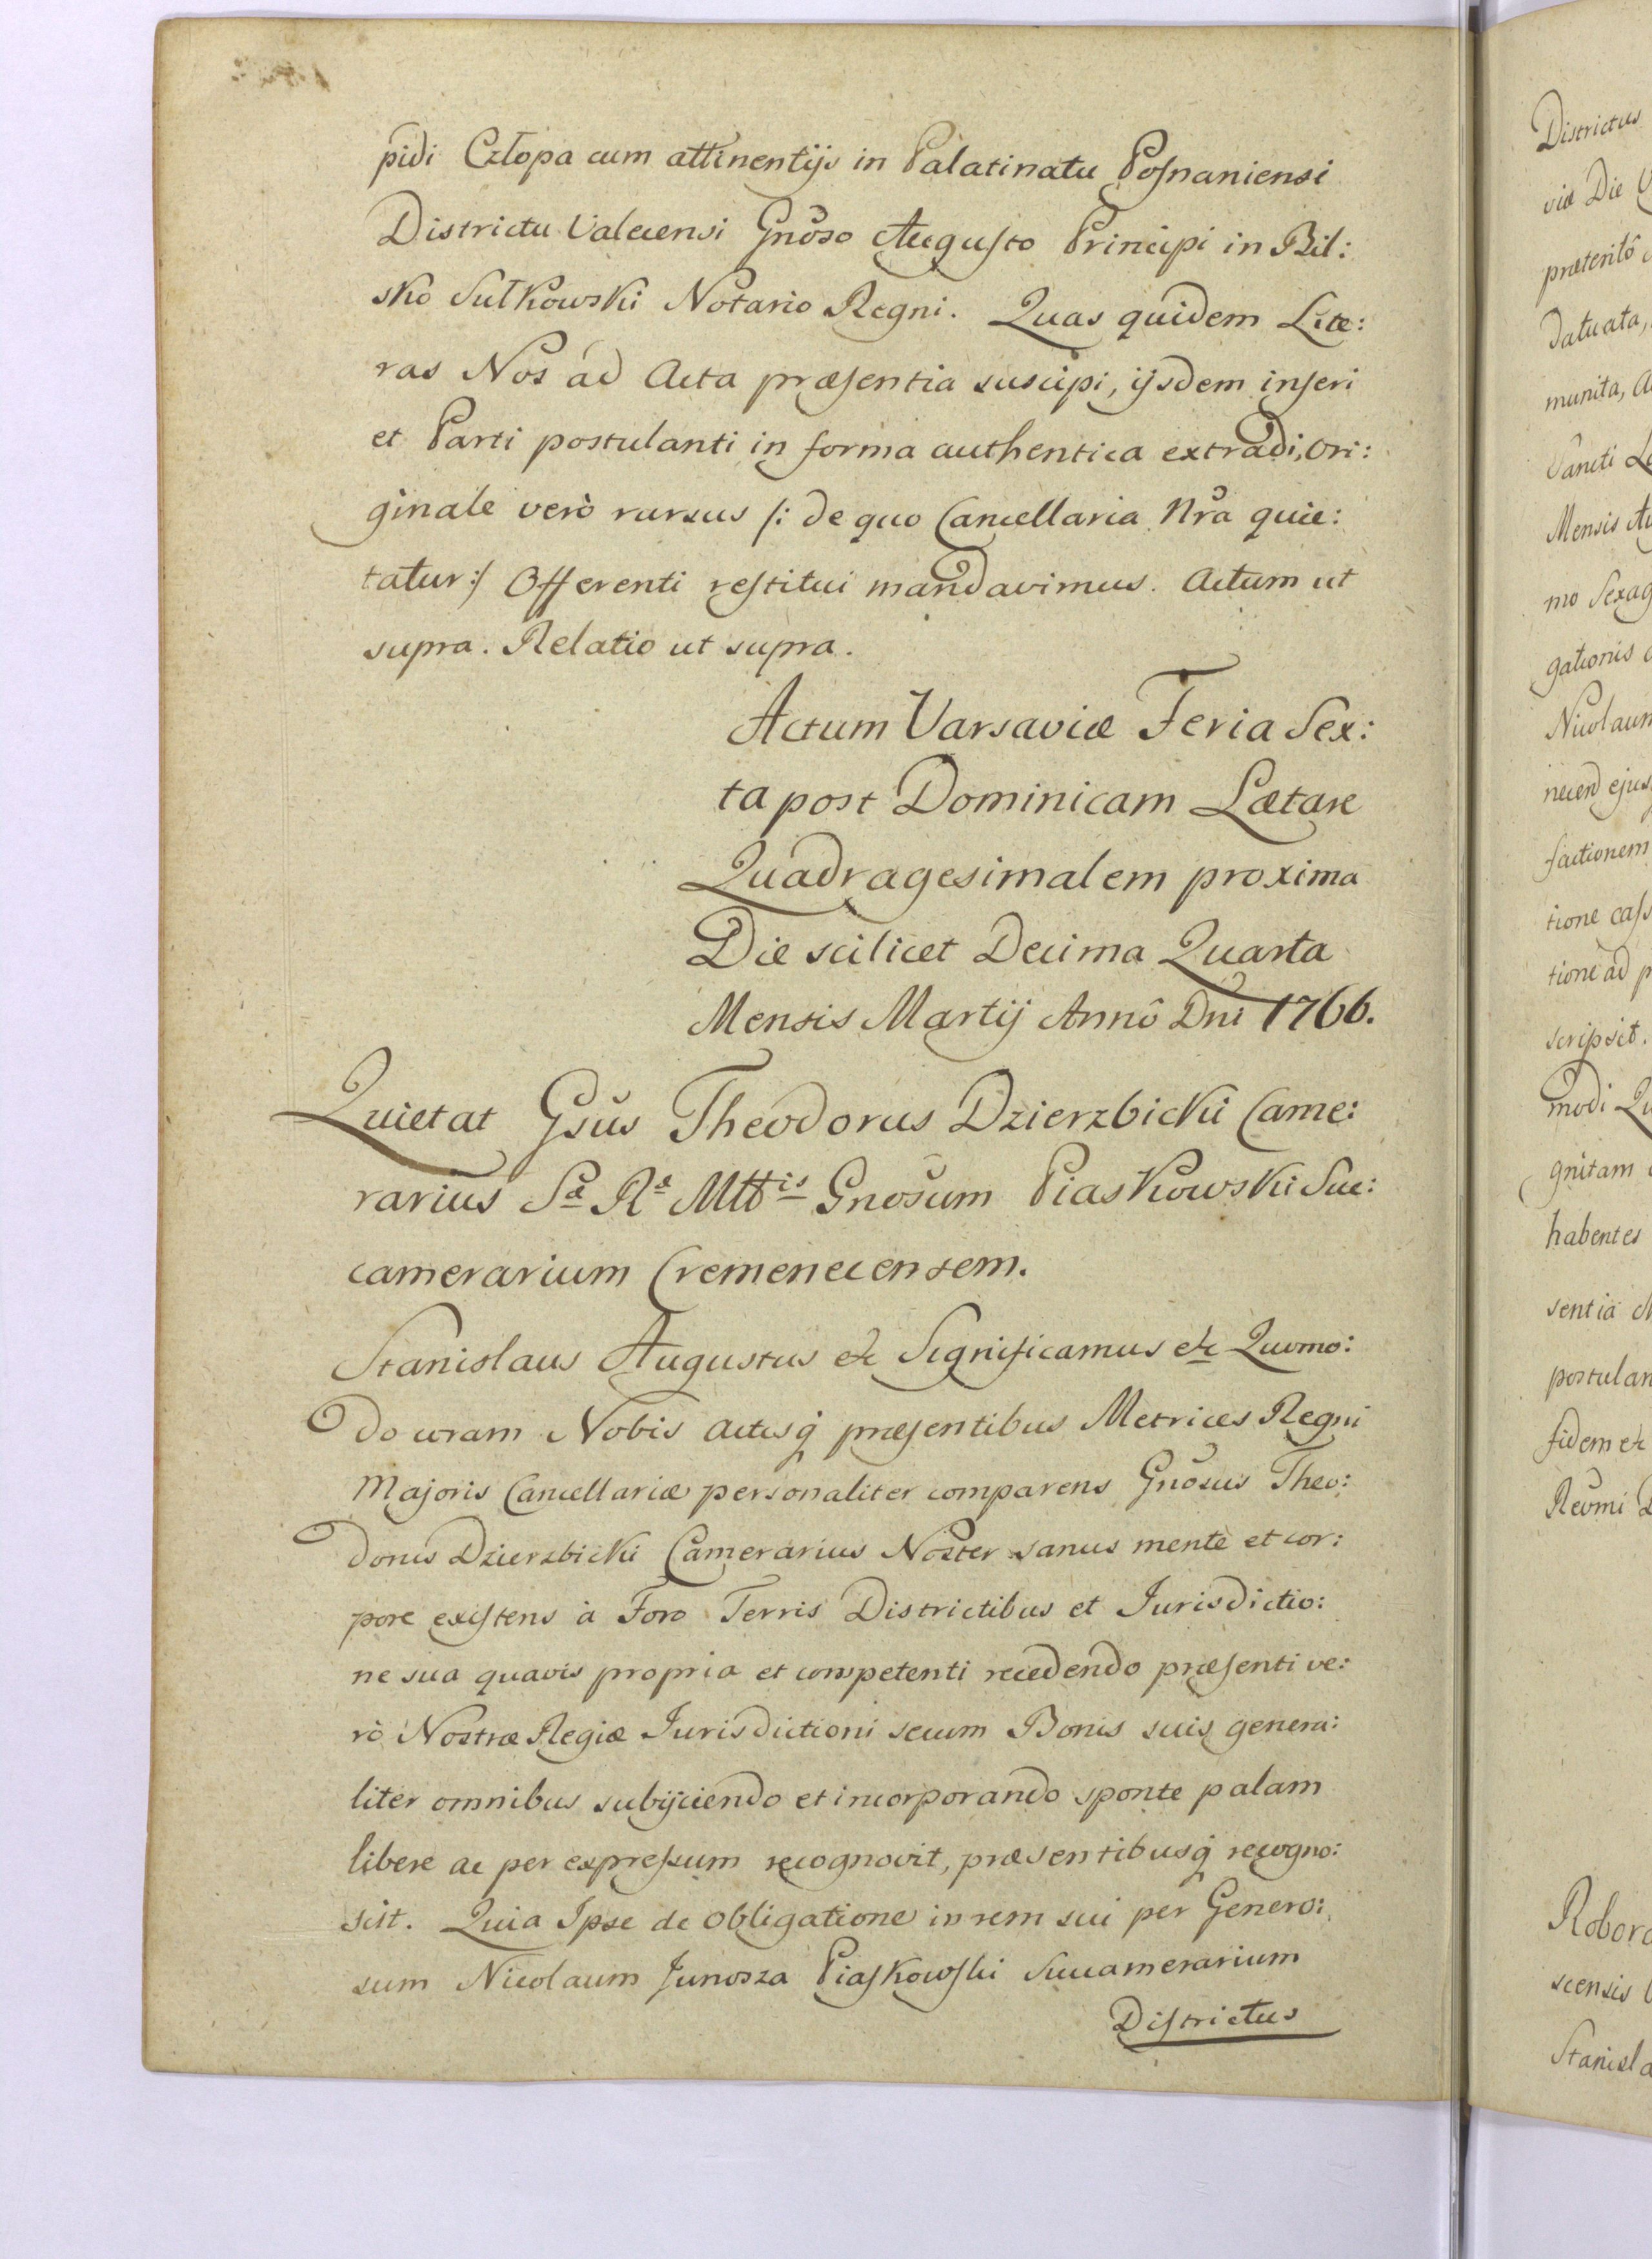 pidi Człopa cum attinentijs in Palatinatu Posnaniensi
Districtu Valcensi Gnõso Augusto Principi in Bil:
sko Sułkowski Notario Regni. Quas quidem Lite:
ras Nos ad Acta præsentia suscipi, ijsdem inseri
et Parti postulanti in forma authentica extradi, Ori:
ginale verò rursus /: de quo Cancellaria Nrã quie:
tatur :/ Offerenti restitui mandavimus. Actum ut
supra. Relatio ut supra.
Actum Varsaviæ Feria Sex:
ta post Dominicam Lætare
Quadragesimalem proxima
Die scilicet Decima Quarta
Mensis Martij Annô Dni 1766.
Quietat Gsũs Theodorus Dzierzbicki Came:
rarius Sæ Ræ Mttis Gnosum Piaskowski Suc:
camerarium Cremenecensem.
Stanislaus Augustus etc Significamus etc Quomo:
do coram Nobis Actisq̃ præsentibus Metrices Regni
Majoris Cancellariæ personaliter comparens Gnõsus Theo:
dorus Dzierzbicki Camerarius Noster sanus mente et cor:
pore existens à Foro Terris Districtibus et Jurisdictio:
ne sua quavis propria et competenti recedendo præsenti ve:
rò Nostræ Regiæ Jurisdictioni secum Bonis suis genera:
liter omnibus subijciendo et incorporando sponte palam
libere ac per expressum recognovit, præsentibusq̃ recogno:
scit. Quia Ipse de Obligatione in rem sui per Genero:
sum Nicolaum Junosza Piaskowski Succamerarium
Districtus
Districtus
viæ Die
præteritô
datuata,
munita,
Sancti
Mensis
mo Sexag
gationis
Nicolaum
necend ejus
factionem
tione cass
tione ad p
scripsit.
modi
gnitam
habentes
sentia
postulan
fidem etc
Reṽmi
Robora
scensis
Stanisla